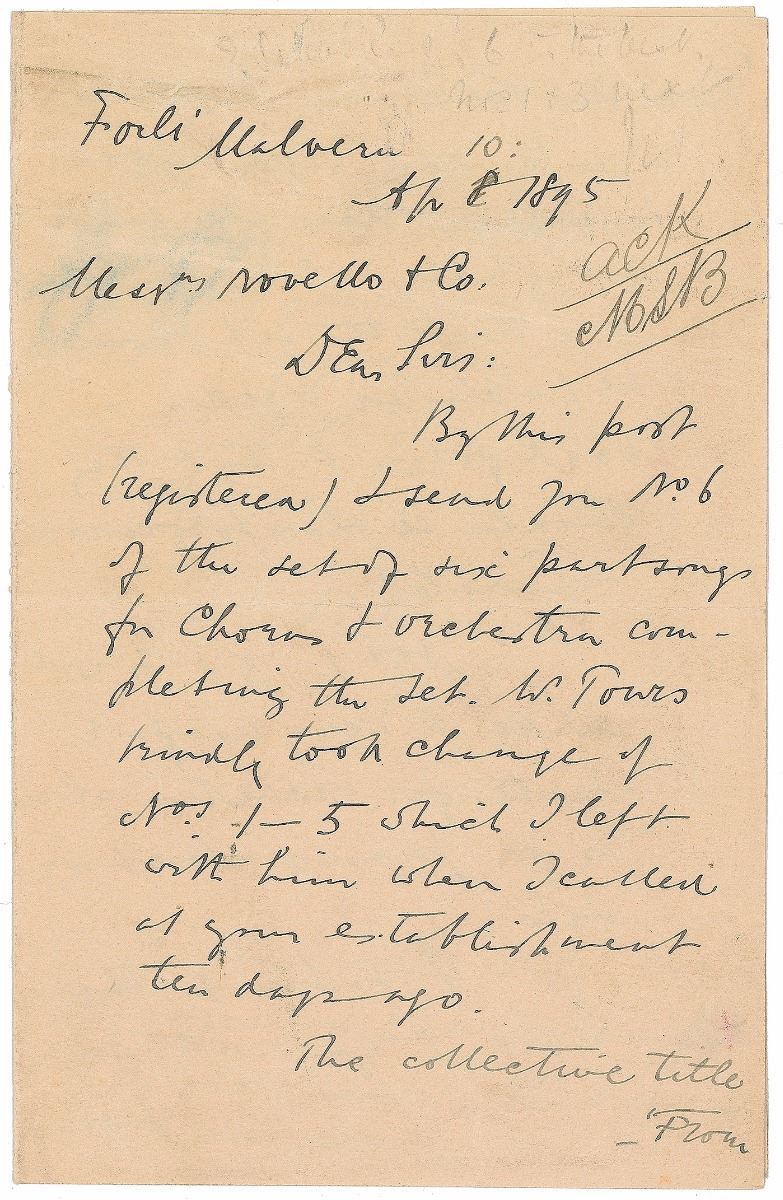 Forli Malvern 10:
Ap 1895
ack
MSB
Messrs Novello & Co.
Dear Sirs:
By this post
(registered) I send you No. 6
of the set of six partsongs
for Chorus & orchestra com-
pleting the set. Mr. Tours
kindly took charge of
Nos. 1–5 which I left
with him when I called
at your establishment
ten days ago.
The collective title
– "From